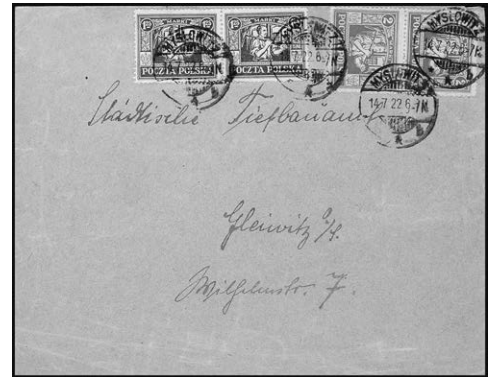 MARKI MARKI
POCZTA POLSKA POCZTA POLSKA
2
MYSLOWITZ
14.7.22.6-7N
MYSLOWITZ
14.7.22.6-7N
Städtische Tiefbauamt
Gleiwitz O/S.
Wilhelmstr. 7.